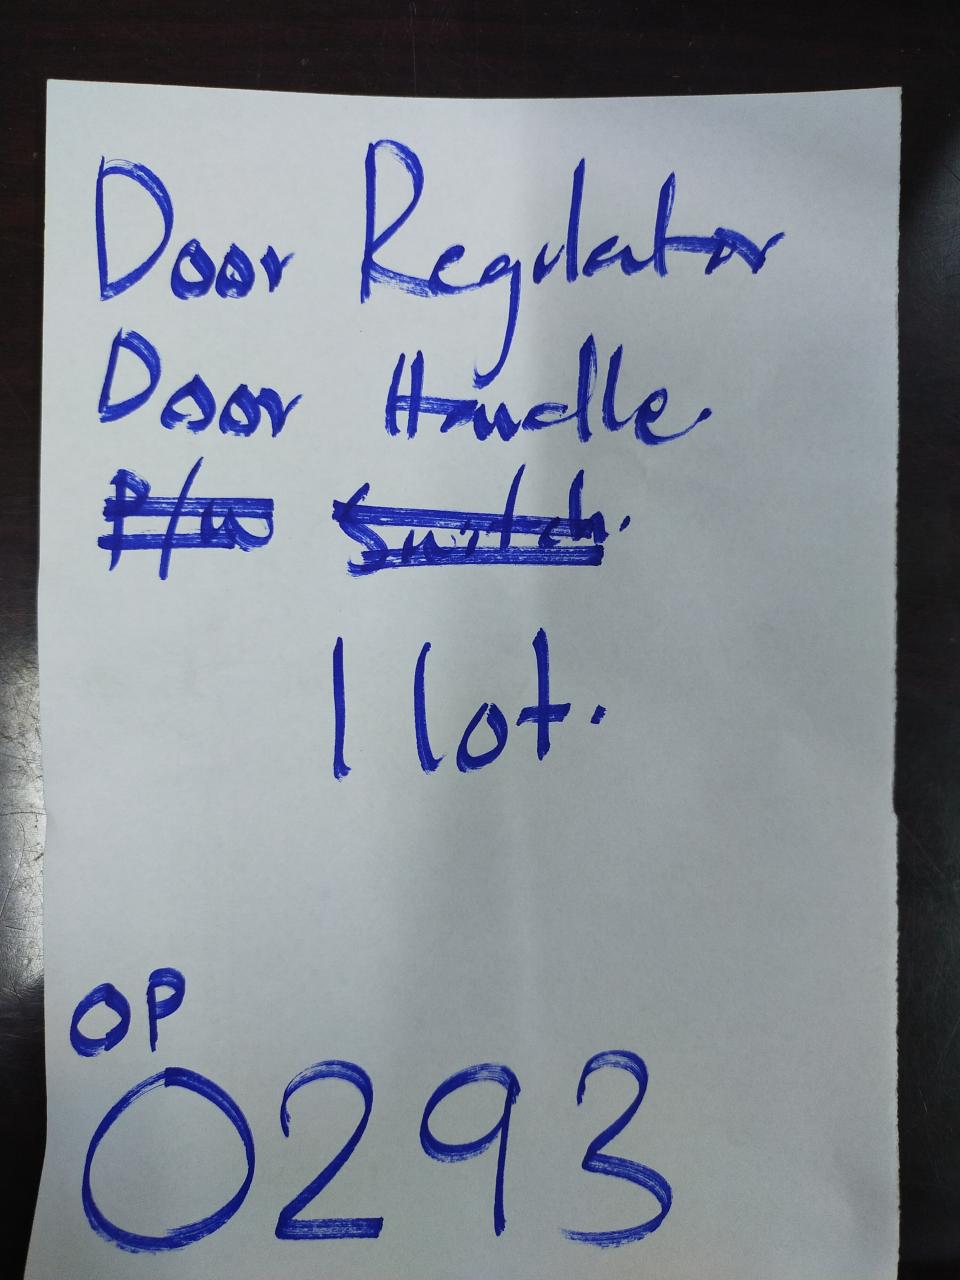 Door Regulator
Door Handle.
P/W Switch.
1 lot.
OP
0293